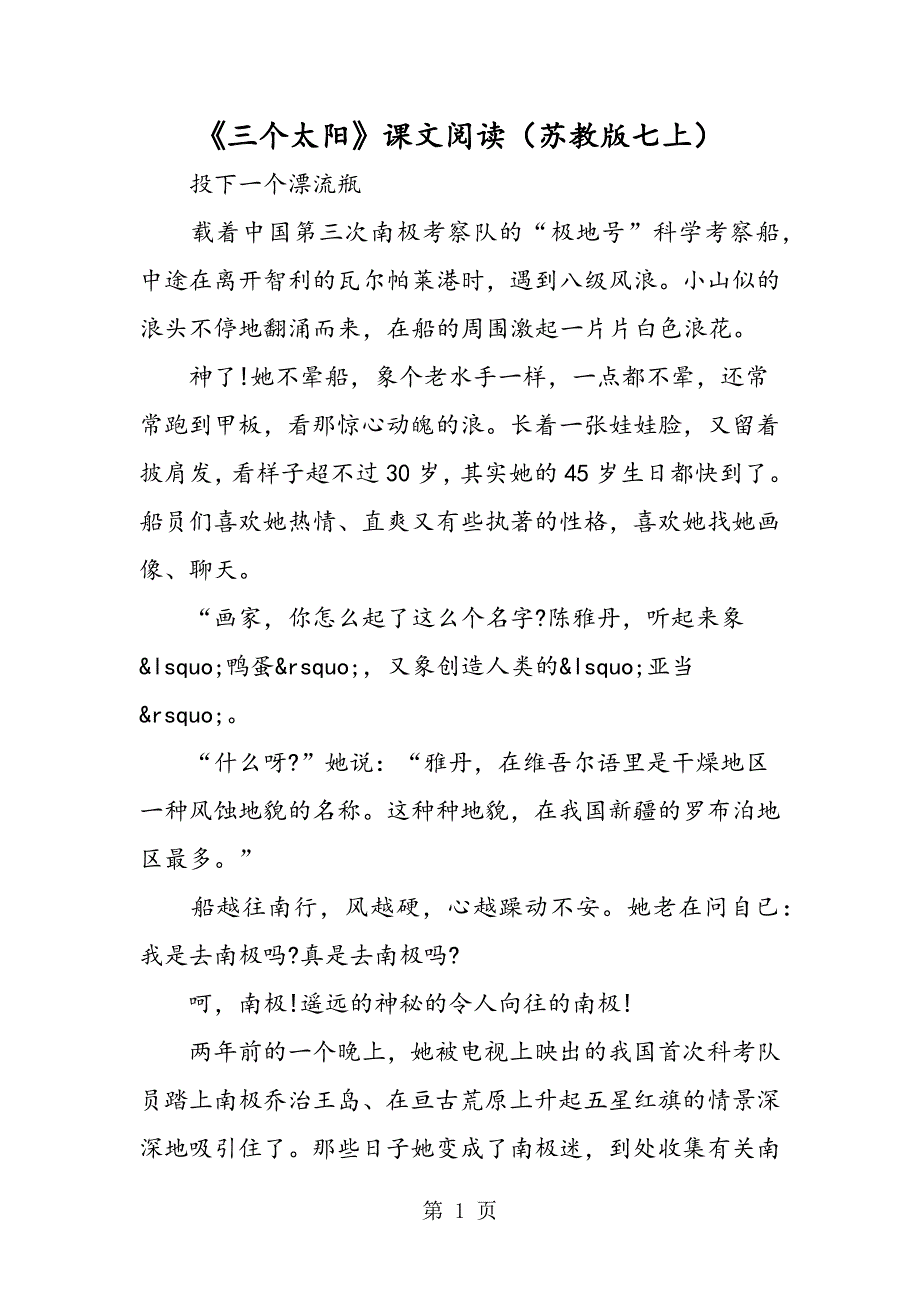 《三个太阳》课文阅读（苏教版七上）
投下一个漂流瓶
载着中国第三次南极考察队的“极地号”科学考察船，
中途在离开智利的瓦尔帕莱港时，遇到八级风浪。小山似的
浪头不停地翻涌而来，在船的周围激起一片片白色浪花。
神了!她不晕船，象个老水手一样，一点都不晕，还常
常跑到甲板，看那惊心动魄的浪。长着一张娃娃脸，又留着
披肩发，看样子超不过 30 岁，其实她的 45 岁生日都快到了。
船员们喜欢她热情、直爽又有些执著的性格，喜欢她找她画
像、聊天。
“画家，你怎么起了这么个名字?陈雅丹，听起来象
&lsquo;鸭蛋&rsquo;，又象创造人类的&lsquo;亚当
&rsquo;。
“什么呀?”她说：“雅丹，在维吾尔语里是干燥地区
一种风蚀地貌的名称。这种种地貌，在我国新疆的罗布泊地
区最多。”
船越往南行，风越硬，心越躁动不安。她老在问自已：
我是去南极吗?真是去南极吗?
呵，南极!遥远的神秘的令人向往的南极!
两年前的一个晚上，她被电视上映出的我国首次科考队
员踏上南极乔治王岛、在亘古荒原上升起五星红旗的情景深
深地吸引住了。那些日子她变成了南极迷，到处收集有关南
第 1 页